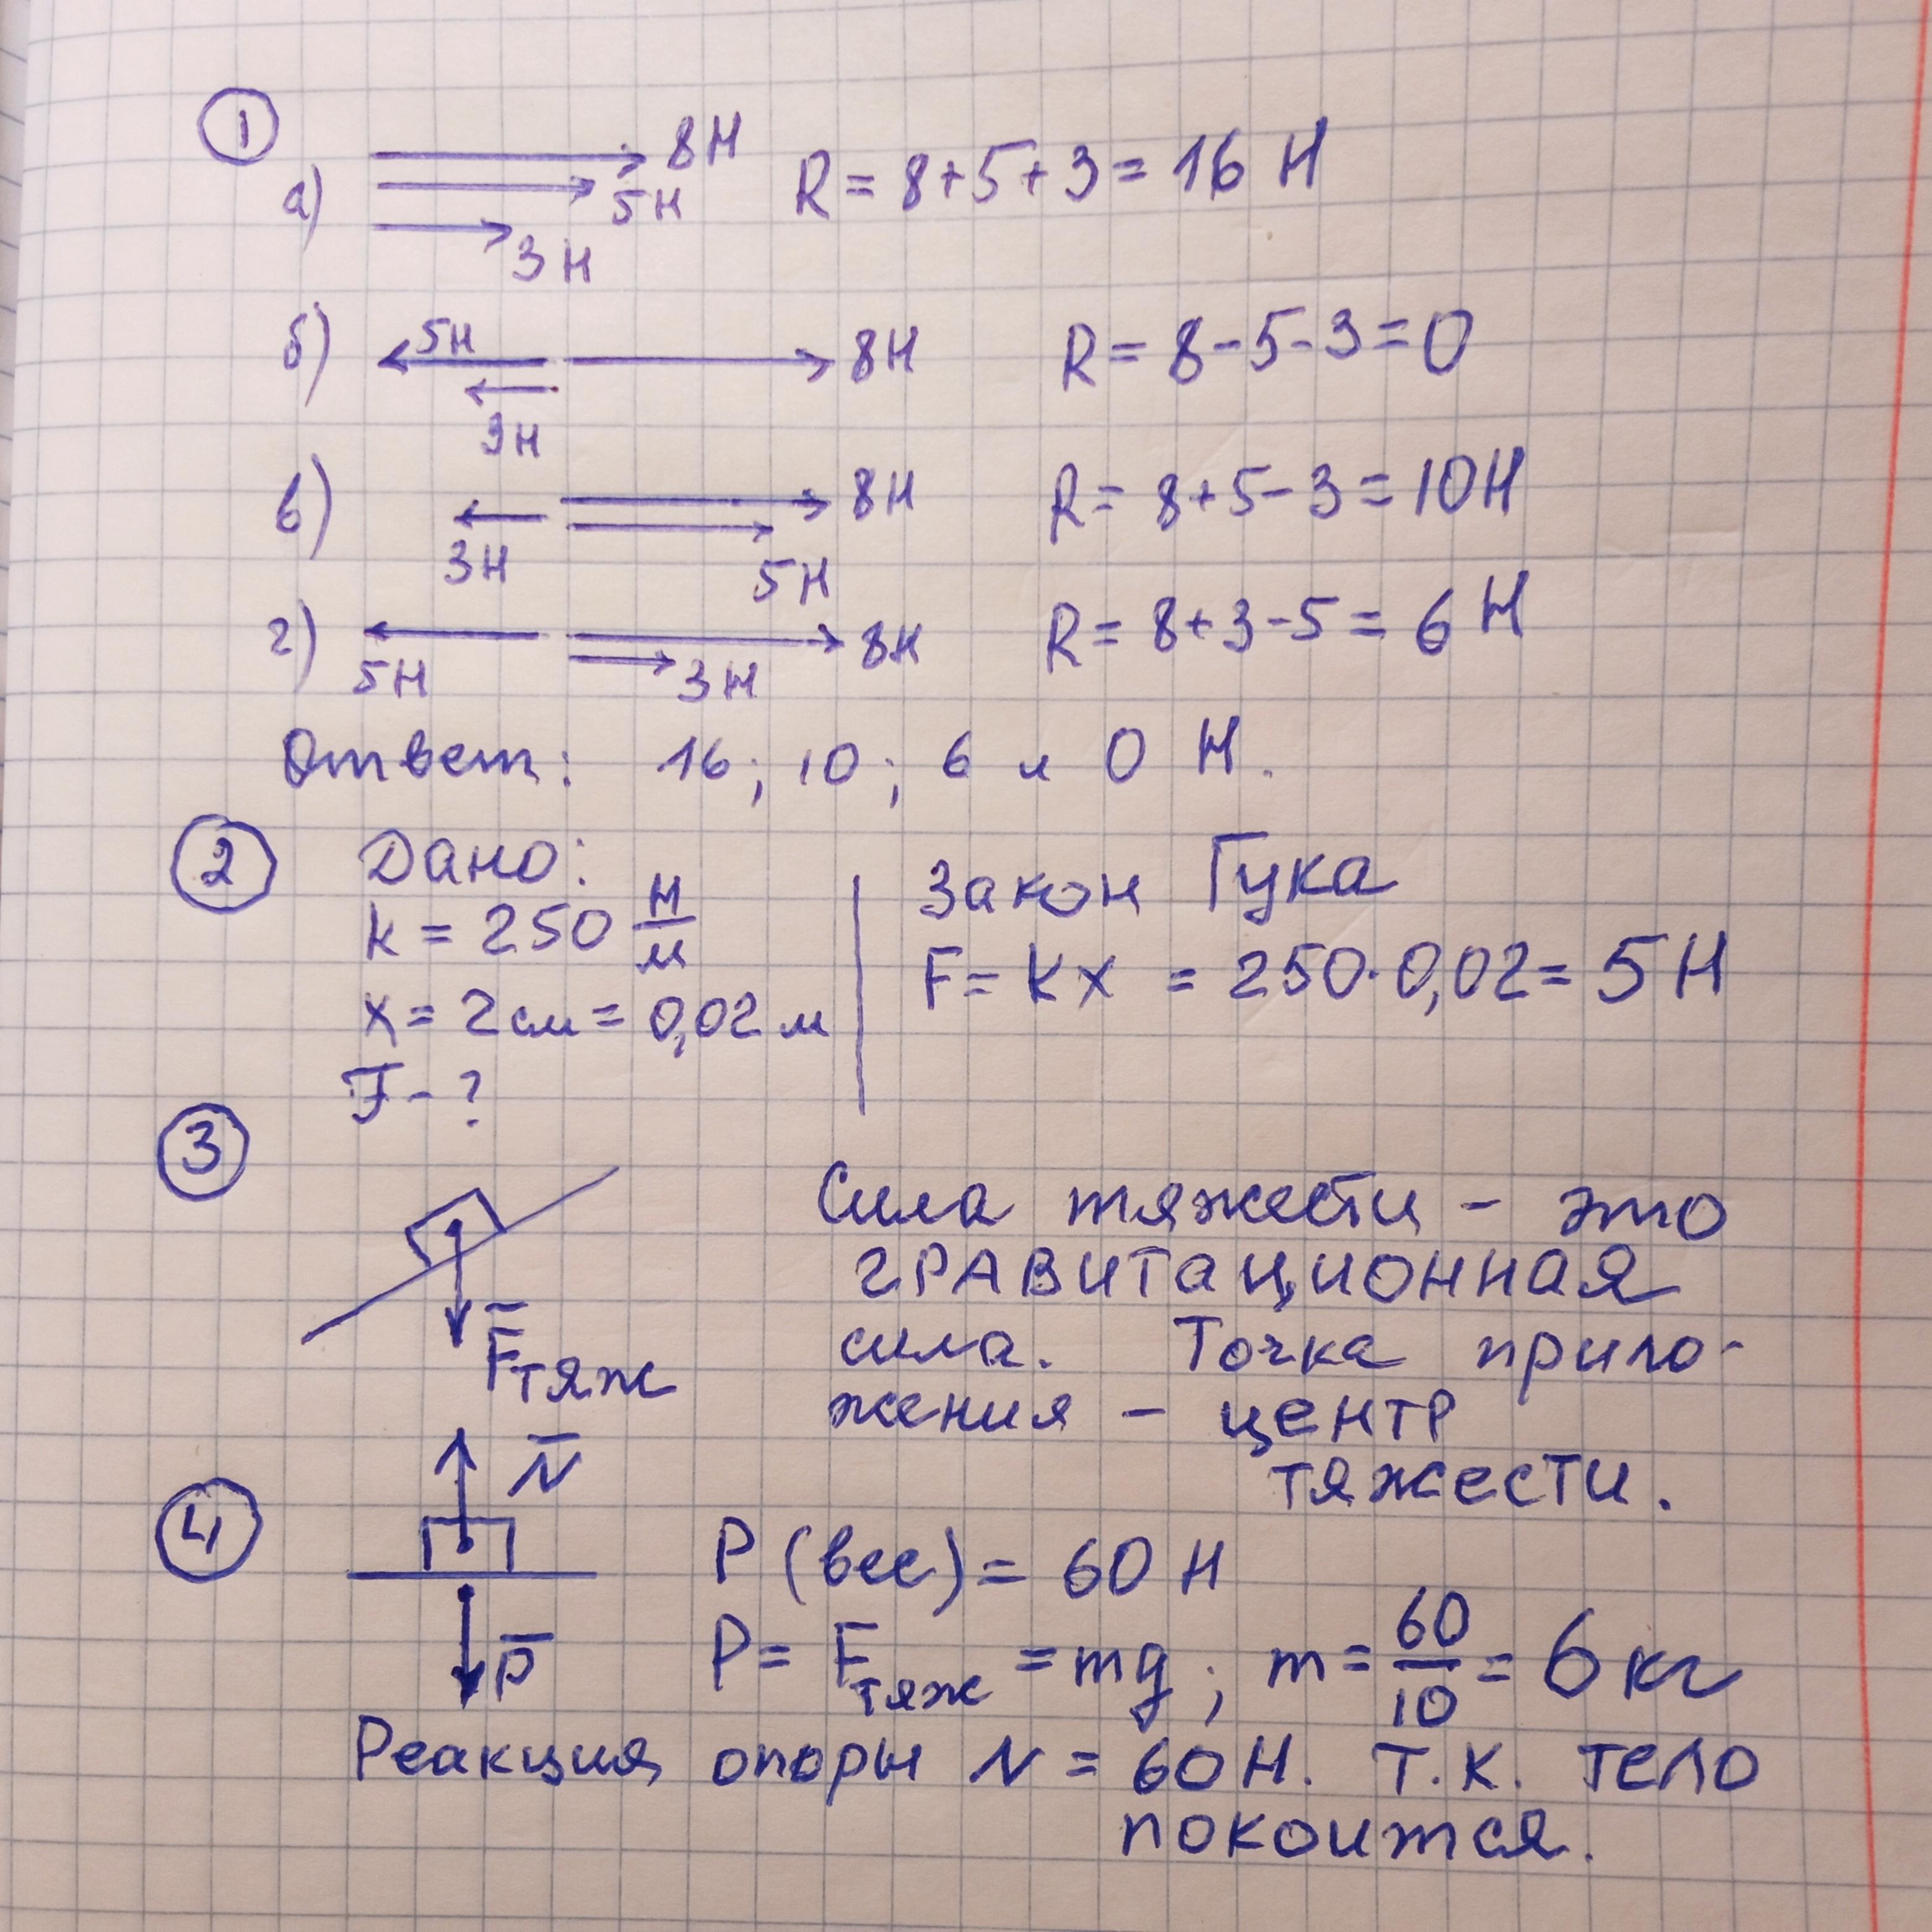 1
а) 8Н R = 8+5+3 = 16 Н
5Н
3Н
б) 5Н 8Н R = 8-5-3=0
3Н
в) 8Н R = 8+5-3 = 10Н
3Н 5Н
г) 5Н 3Н 8Н R = 8+3-5 = 6 Н
Ответ: 16; 10; 6 и 0 Н.
2 Дано:
k = 250 Н/м
x = 2см = 0,02 м
F - ?
Закон Гука
F = kx = 250·0,02 = 5Н
3
F̅тяж
Сила тяжести – это
гравитационная
сила. Точка прило-
жения – центр
тяжести.
4
N̅
P̅
P (вес) = 60 Н
P = Fтяж = mg; m = 60/10 = 6кг
Реакция опоры N = 60Н. Т.К. тело
покоится.